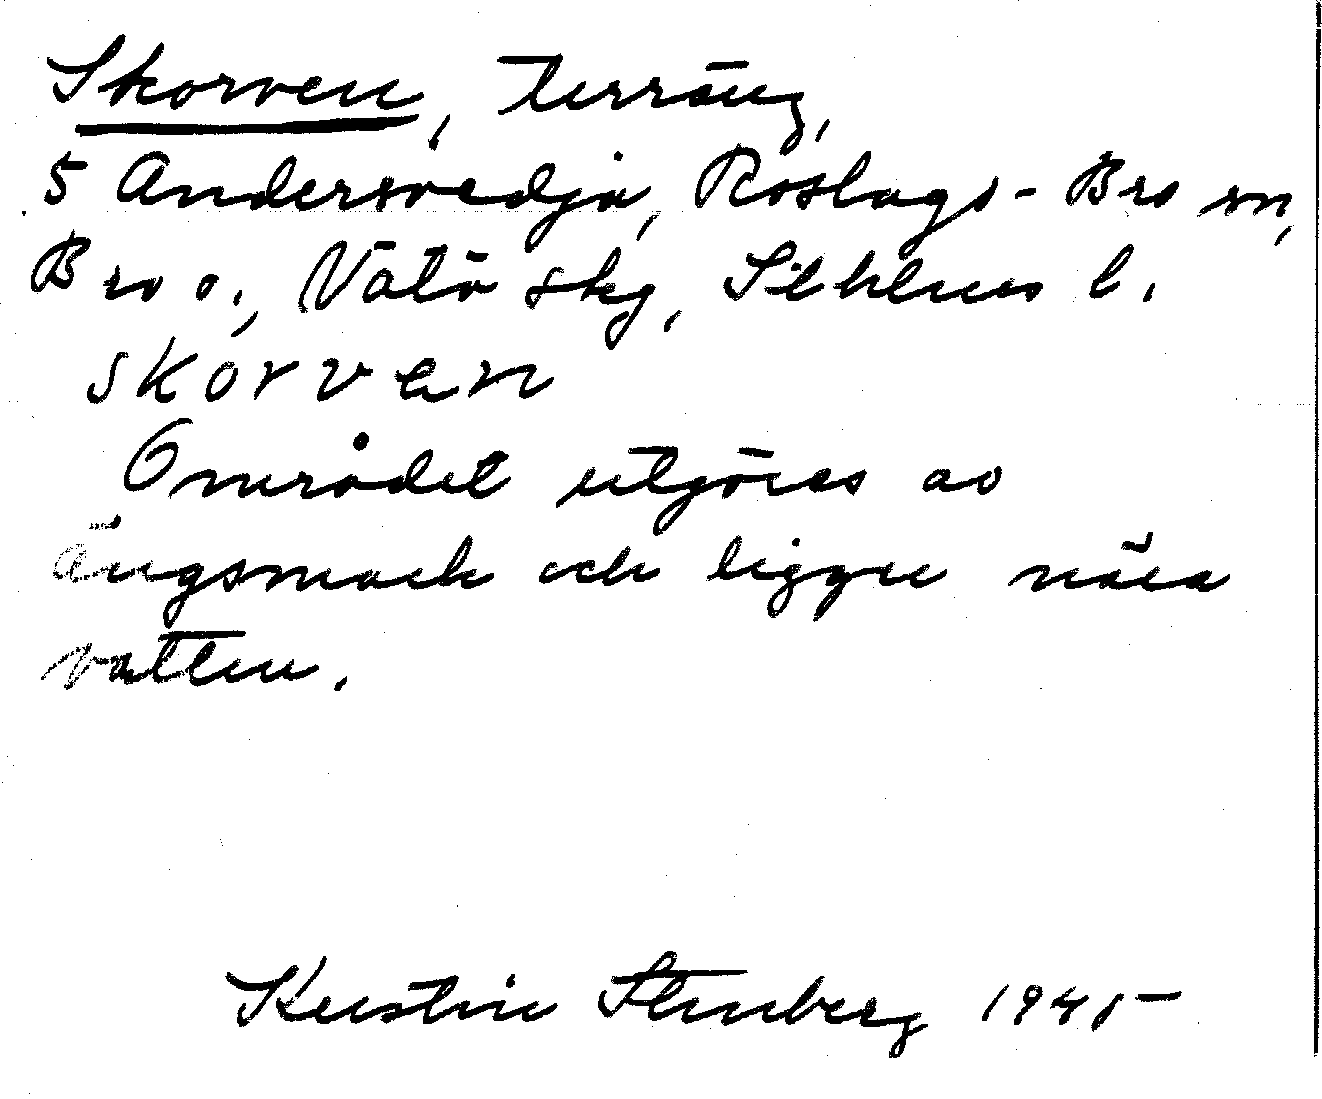 Skorven, terräng,
5 Andersvedja, Roslags-Bro sn,
Bro o., Vätö skg, Sthlms l.
skorvan
Området utgöres av
ängsmark och ligger nära
vatten.
Kerstin Stenberg 1945